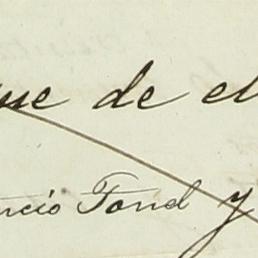 que de el
ncio Fond y